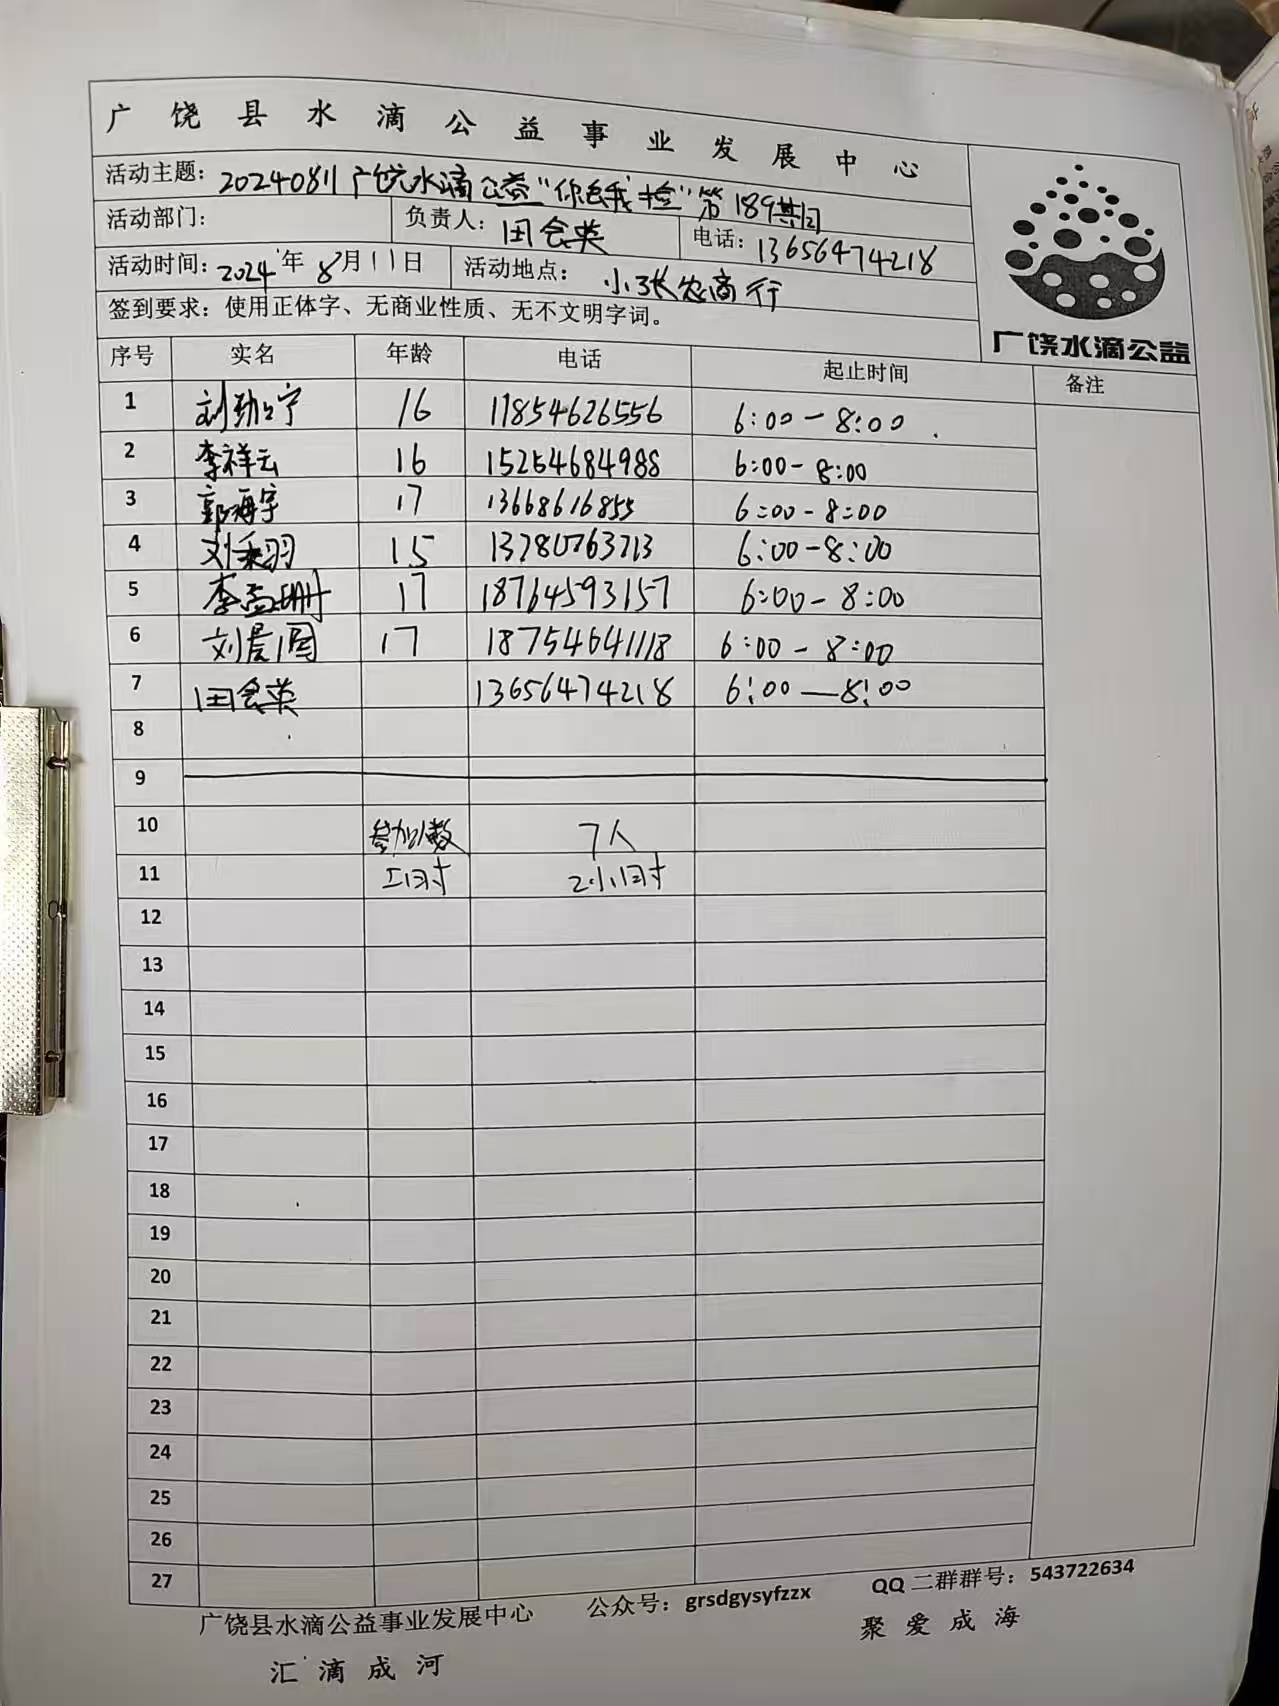 广饶县水滴公益事业发展中心
活动主题：20240811广饶水滴公益"你丢我捡"第189期
活动部门： 负责人：田会英 电话：13656474218
活动时间：2024年8月11日 活动地点：小张农商行
签到要求：使用正体字、无商业性质、无不文明字词。
广饶水滴公益
序号 实名 年龄 电话 起止时间 备注
1 刘劲宁 16 11854626556 6:00-8:00
2 李祥云 16 15254684988 6:00-8:00
3 郭海宇 17 13668616855 6:00-8:00
4 刘秉羽 15 13780763713 6:00-8:00
5 李孟珊 17 18764593157 6:00-8:00
6 刘晨 17 18754641118 6:00-8:00
7 田会英 13656474218 6:00—8:00
8
9
10 参加人数 7人
11 工时 2小时
12
13
14
15
16
17
18
19
20
21
22
23
24
25
26
27
广饶县水滴公益事业发展中心 公众号：grsdgysyfzzx QQ二群群号：543722634
汇滴成河 聚爱成海